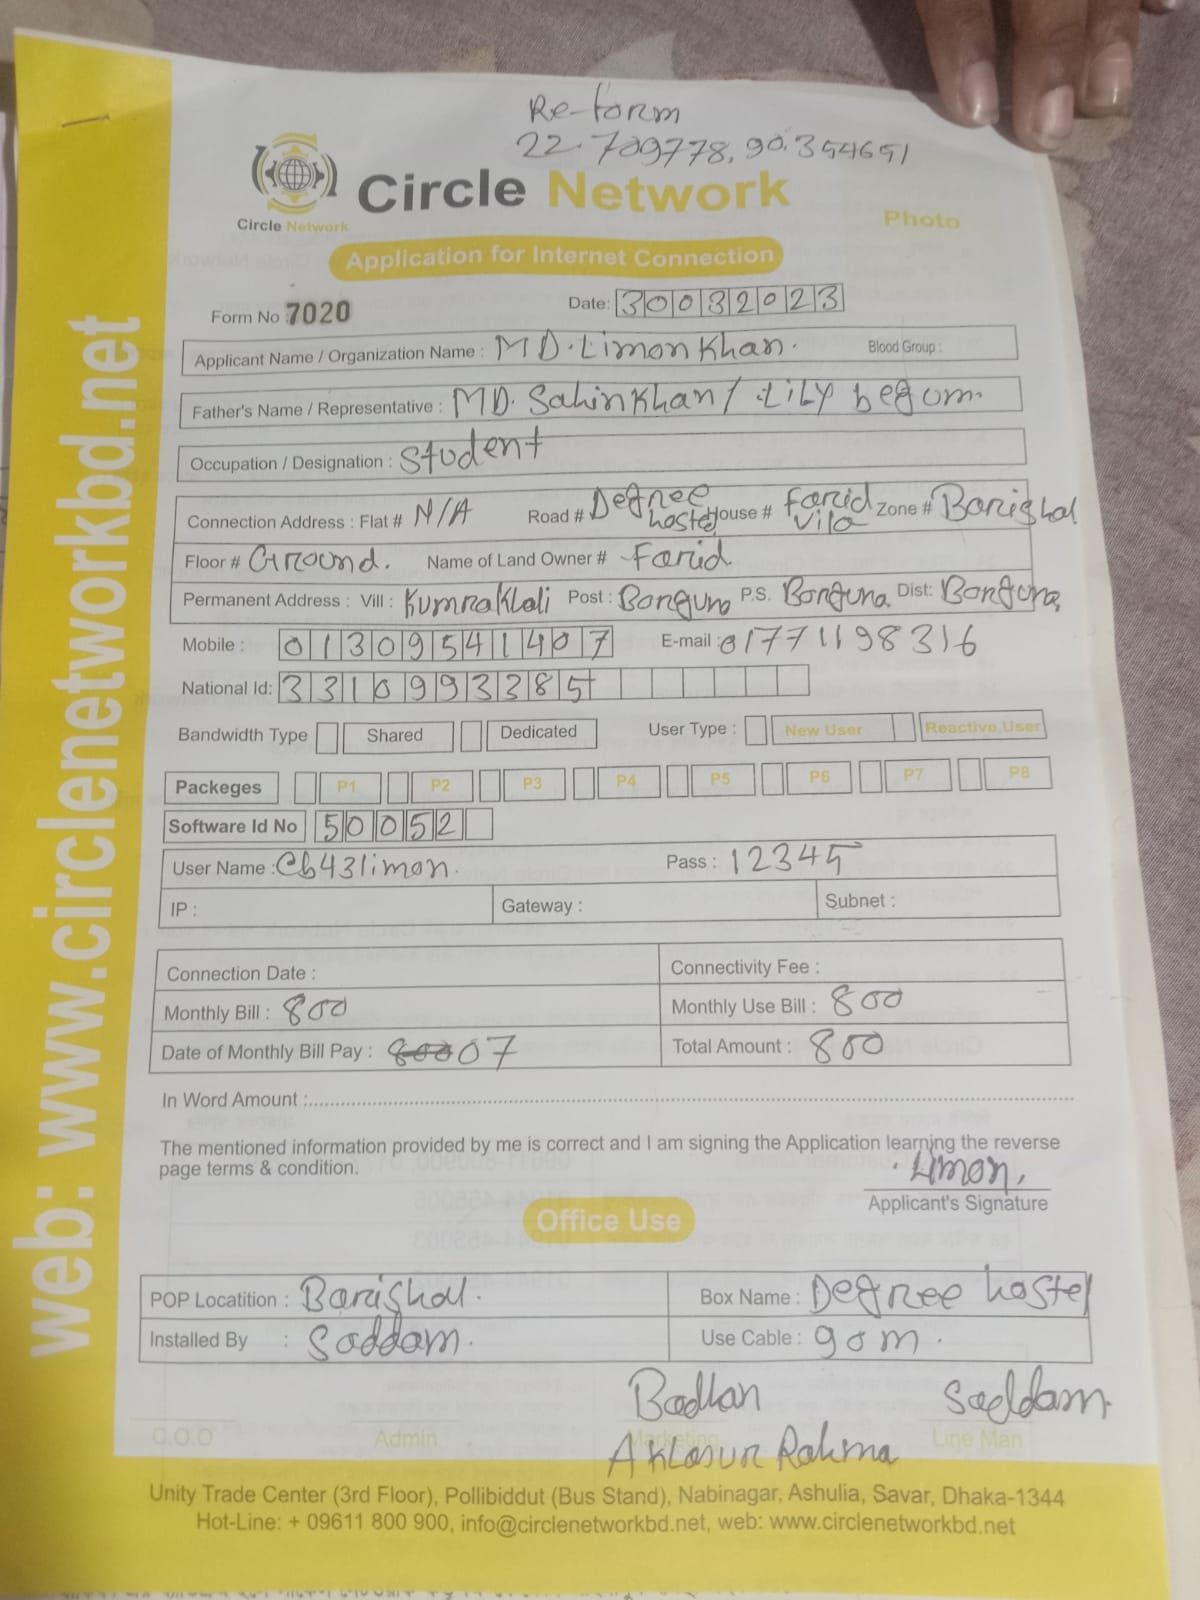 Re-form
22.709778, 90.354651
Circle Network
Circle Network
Photo
Application for Internet Connection
Form No : 7020 Date: 30032023
Applicant Name / Organization Name : MD. Limon Khan. Blood Group :
Father's Name / Representative : MD. Sahin Khan / Lily begom.
Occupation / Designation : Student
Connection Address : Flat # N/A Road # Degree hostel House # Farid Vila Zone # Barishal
Floor # Ground. Name of Land Owner # Farid
Permanent Address : Vill : Kumraklali Post : Bonguna P.S. Bonguna Dist: Bonguna
Mobile : 01309541407 E-mail : 01771198316
National Id: 3310993385
Bandwidth Type Shared Dedicated User Type : New User Reactive User
Packeges P1 P2 P3 P4 P5 P6 P7 P8
Software Id No 50052
User Name : Cb43limon. Pass : 12345
IP : Gateway : Subnet :
Connection Date : Connectivity Fee :
Monthly Bill : 800 Monthly Use Bill : 800
Date of Monthly Bill Pay : 07 Total Amount : 800
In Word Amount :
The mentioned information provided by me is correct and I am signing the Application learning the reverse
page terms & condition.
Limon.
Applicant's Signature
Office Use
POP Locatition : Barishal. Box Name : Degree hostel
Installed By : Saddam. Use Cable : 90m.
Badhan Saddam.
C.O.O Admin Marketing Line Man
Rahma
Unity Trade Center (3rd Floor), Pollibiddut (Bus Stand), Nabinagar, Ashulia, Savar, Dhaka-1344
Hot-Line: + 09611 800 900, info@circlenetworkbd.net, web: www.circlenetworkbd.net
web: www.circlenetworkbd.net